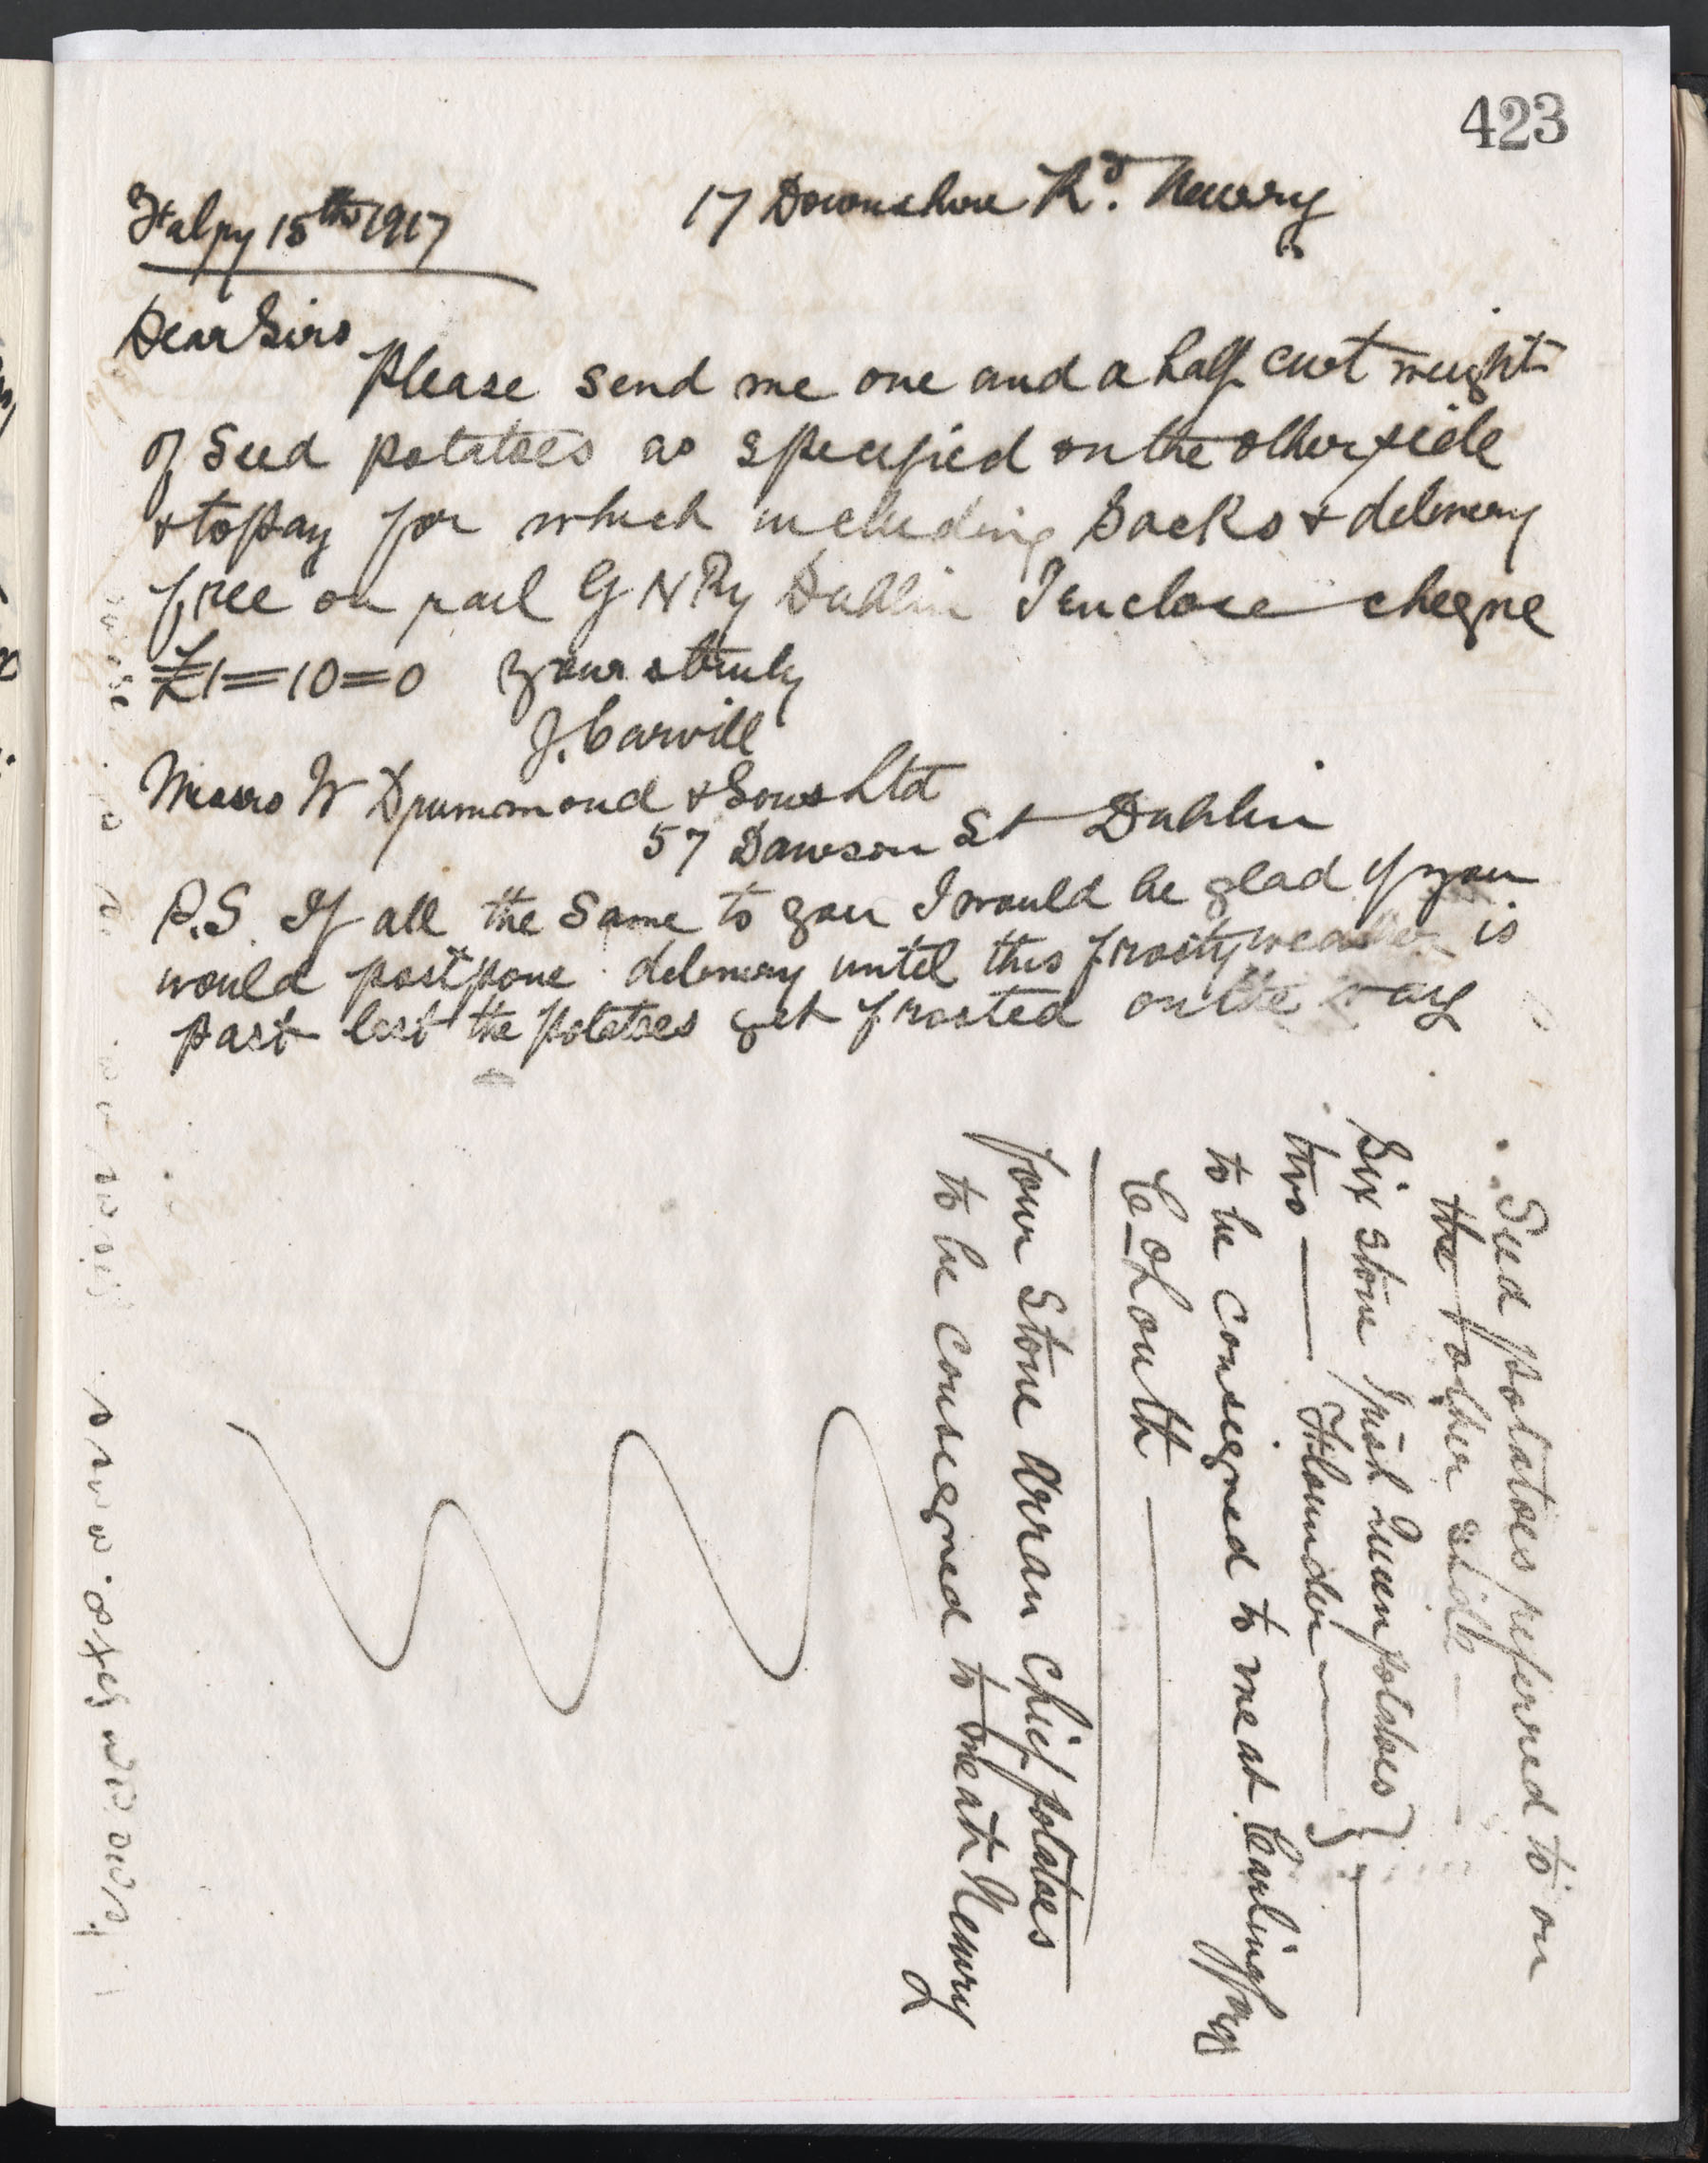 423
17 Downshire Rd. Newry
15th 1917
Dear Sirs
Please send me one and a half cwt weight
of Seed potatoes as specified on the other side
& to pay for which including Sacks & delivery
free on rail G N Ry Dublin I enclose cheque
£1=10=0 yours truly
J. Carvill
Messrs W Drummond & Sons Ltd
57 Dawson St Dublin
P.S. If all the same to you I would be glad if you
would postpone delivery until this frosty weather is
past lest the potatoes get frosted on the way
Seed potatoes referred to on
the other side
Six stone Irish Queen potatoes }
two — Flounder — }
to be consigned to me at Carlingford
Co Louth
four Stone Arran Chief potatoes
to be consigned to me at Newry